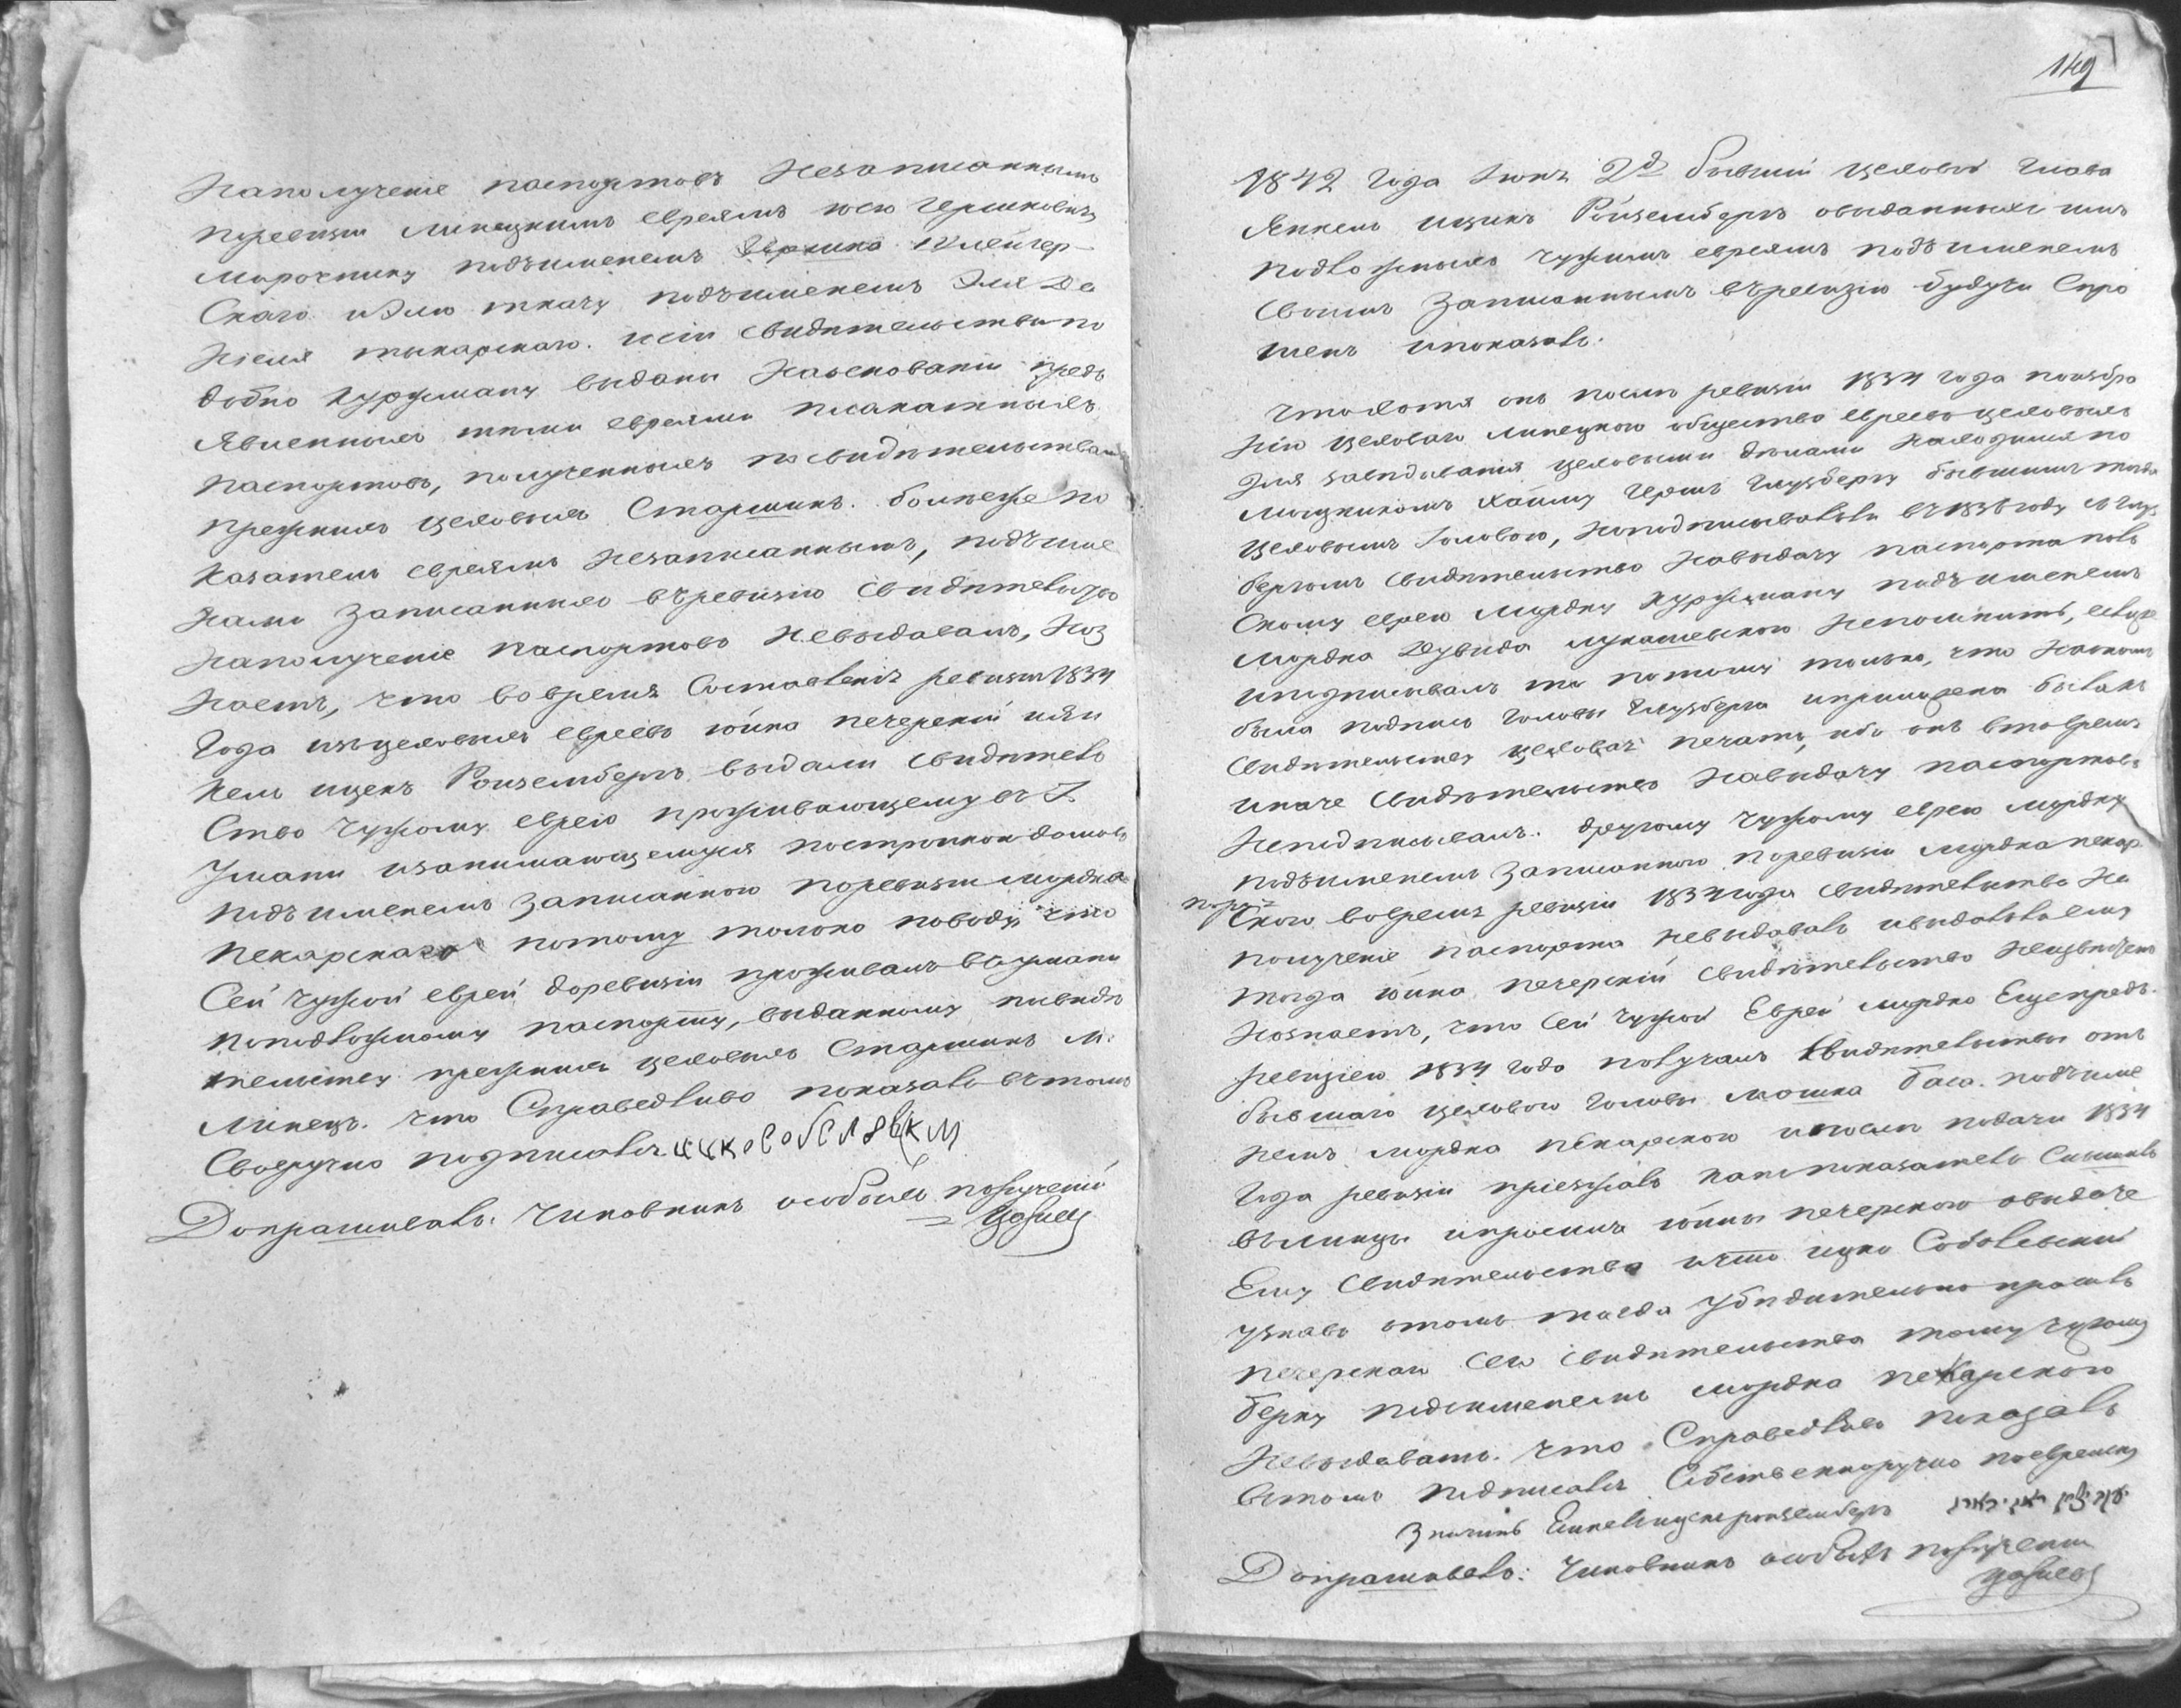 Наполученіе паспортовъ Незаписаннымъ
поревизіи липецкимъ евреямъ юсю Гершковичу
мирочнику подъименемъ Клейгер-
Скаго иЭлю ткачу подъименемъ Эля Да
Ніеля токарскаго. исіи свидѣтельства по
добно Куржману выданы Наоснованіи предъ
Явленныхъ тѣми евреями плакатныхъ
паспортовъ, полученныхъ посвидѣтельствамъ
прежнихъ цеховыхъ Старшинъ. болѣеже по
Казатель евреямъ Незаписаннымъ, подъиме
Нами записанныхъ въревизію Свидѣтельствъ
Наполученіе паспортовъ Невыдавалъ, Ноз
Наетъ, что вовремя Составленія ревизіи 1834
Года изъцеховыхъ евреевъ юйна печерскій иЯн
Кель ицекъ Роизембергъ выдали свидѣтель
Ство Чужому еврею проживающему въ Г.
Умани изанимающемуся постройкою домовъ
подъименемъ записанного поревизіи мордка
пекарскаго потому только поводу что
Сей Чужой еврей доревизіи проживалъ вУмани
поподложному паспорту, выданному посвидѣ
тельству прежнихъ цеховыхъ Старшинъ М.
Липецъ. что Справедливо показалъ вътомъ
Своеручно подписался
Допрашивалъ: Чиновникъ особыхъ порученій

149
1842 Года Іюня 2д бывшій цеховой Глава
Янкель ицикъ Ройземберъ овыданныхъ имъ
подложныхъ чужимъ евреямъ подъименемъ
Своимъ записаннымъ въревизію будучи Спро
шенъ ипоказалъ.
Чтохотя онъ послѣ ревизіи 1834 года поизбра
Нію цеховаго липецкого общества евреевъ цеховыхъ
для завѣдыванія цеховыми дѣлами Находился по
мощникомъ Хаиму Гершъ Гинзбергу бывшимъ тогда
Цеховымъ Головою, Ноподписывалъли въ1836году сГинз
бергомъ свидѣтельство Навыдачу паспорта
Скому еврею мордку Куржману подъименемъ
мордка Дувида лукашевского Непомнитъ,
иподписывалъ то потому только, что Наономъ
была подпись Головы Гинзберга иприложена бытакъ
Свидѣтельству цеховая печать, ибо онъ втовремя
иначе свидѣтельство Навыдачу паспортовъ
Неподписывалъ. другому Чужому еврею мордку
подъименемъ записанного поревизіи мордка пекар
Ского вовремя ревизіи 1834года свидѣтельства На
полученіе паспорта Невыдавалъ ивыдавалъли ему
тогда юйна печерскій свидѣтельство Неизвѣстно
Нознаетъ, что Сей Чужой Еврей мордко Ещепредъ
ревизіею 1834 года получалъ свидѣтельства отъ
бывшаго цехового Головы мошка подъиме
Немъ мордка пекарского ипослѣ подачи 1834
Года ревизіи пріезжалъ Какъ показатель Слышалъ
вълипцы ипросилъ юйны печерского овыдаче
Ему Свидѣтельства ичто ицко Соболевскій
узнавъ отомъ тогда убѣдительно просилъ
печерскаго Сего свидѣтельства тому Чужому
берку подъименемъ мордка пекарского
Невыдавать. что Справедливо показалъ
втомъ подписался Собственноручно поеврейску
Допрашивалъ: Чиновникъ особыхъ порученій